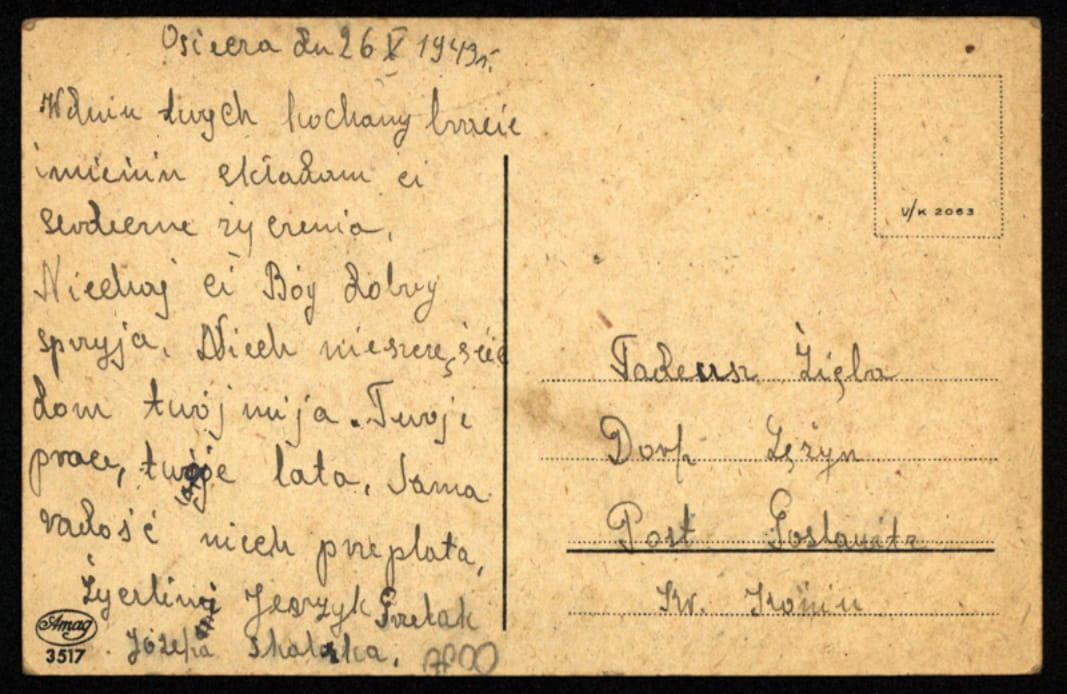 Osiecza dn 26 X 1943r.
W dniu twych kochany bracie
imienin składam ci
serdeczne życzenia,
Niechaj ci Bóg dobry
spryja, Niech nieszczęście
dom twój mija. Twoje
prace, twoje lata, Sama
radość niech przeplata,
Życzliwi Jeszyk
Józefa Skalska,
Amag
3517
V/K 2063
Tadeusz Zięba
Dorf Lężyn
Post Goslawitz
Kr. Konin